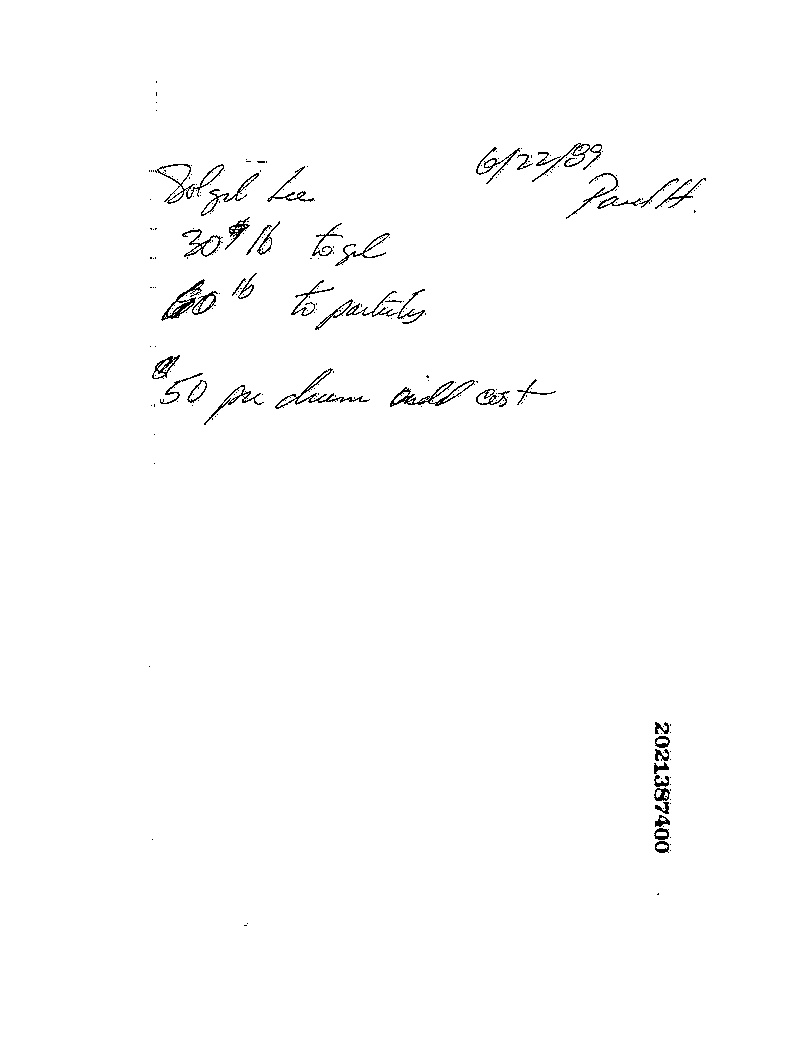 6/22/89
Solgel Lee
Paul H.
30 lb to gel
60 lb to particles
50 per drum add cost
2021387400